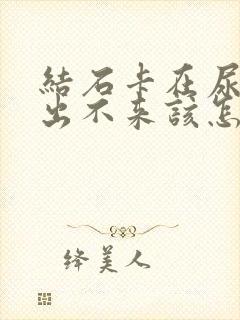 結石卡在尿
出不来該怎
绛美人